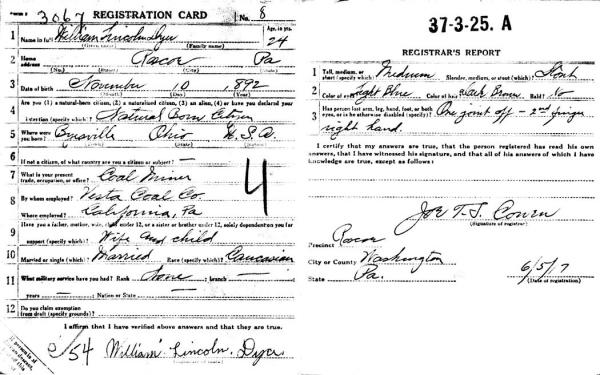 3067 REGISTRATION CARD No. 8
1 Name in full William Lincoln Dyer Age, in yrs. 24
(Given name) (Family name)
2 Home address Roscoe Pa
(No.) (Street) (City) (State)
3 Date of birth November 10 1892
(Month) (Day) (Year)
4 Are you (1) a natural-born citizen, (2) a naturalized citizen, (3) an alien, (4) or have you declared your
intention (specify which)? Natural Born Citizen
5 Where were you born? Byesville Ohio U.S.A.
(Town) (State) (Nation)
6 If not a citizen, of what country are you a citizen or subject? —
7 What is your present trade, occupation, or office? Coal Miner
8 By whom employed? Vesta Coal Co.
Where employed? California, Pa
9 Have you a father, mother, wife, child under 12, or a sister or brother under 12, solely dependent on you for
support (specify which)? Wife and child
10 Married or single (which)? Married Race (specify which)? Caucasian
11 What military service have you had? Rank None; branch —
years —; Nation or State —
12 Do you claim exemption from draft (specify grounds)?
4
I affirm that I have verified above answers and that they are true.
54 William Lincoln Dyer
37-3-25. A
REGISTRAR'S REPORT
1 Tall, medium, or short (specify which)? Medium Slender, medium, or stout (which)? Stout
2 Color of eyes? Light Blue Color of hair? Dark Brown Bald? No
3 Has person lost arm, leg, hand, foot, or both
eyes, or is he otherwise disabled (specify)? One joint off - 2nd finger
right hand.
I certify that my answers are true, that the person registered has read his own
answers, that I have witnessed his signature, and that all of his answers of which I have
knowledge are true, except as follows:
Joe T.S. Cowen
(Signature of registrar)
Precinct Roscoe
City or County Washington
State Pa.
6/5/17
(Date of registration)